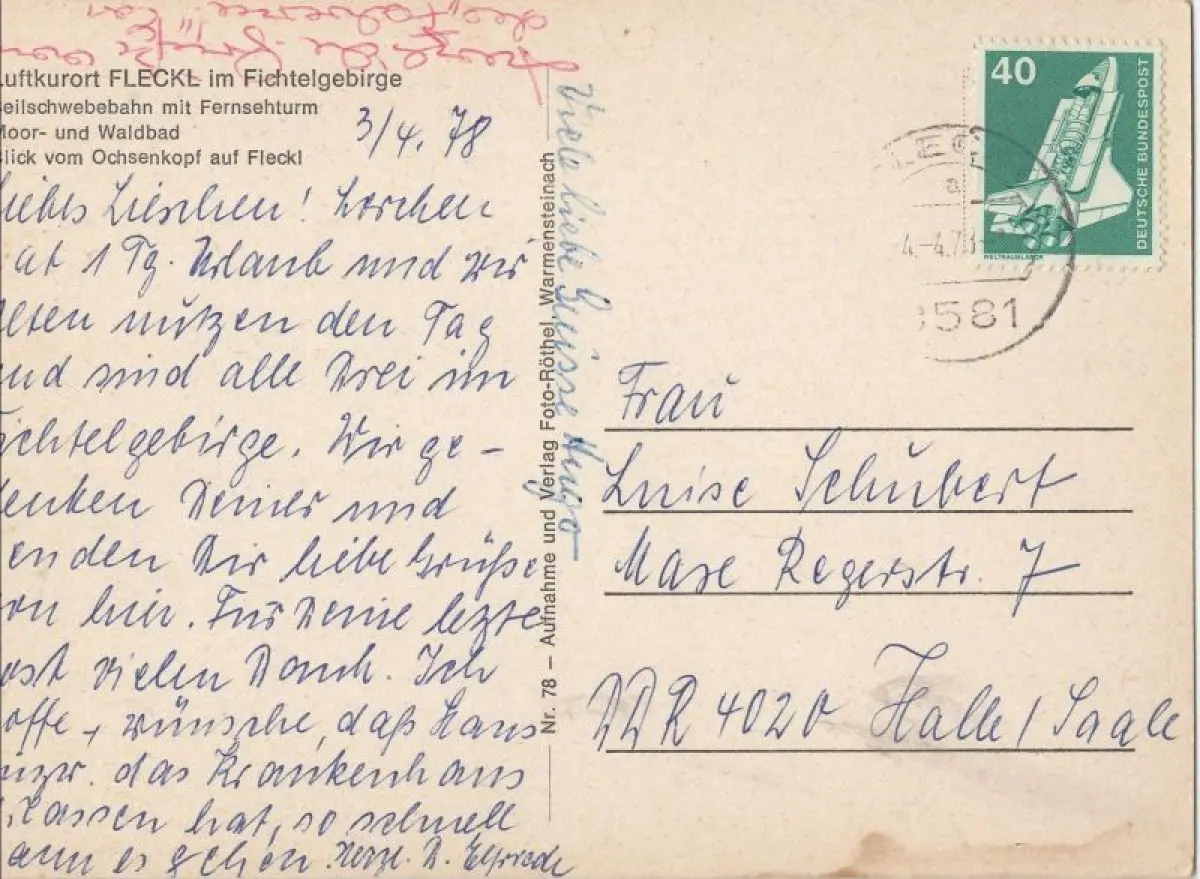 Luftkurort FLECKL im Fichtelgebirge
Seilschwebebahn mit Fernsehturm
Moor- und Waldbad
Blick vom Ochsenkopf auf Fleckl
3/4. 78
liebes Lieschen! Lorchen
at 1 Tg. Urlaub und wir
alten nützen den Tag
und sind alle Drei im
ichtelgebirge. Wir ge-
denken Deiner und
enden Dir liebe Grüße
von hier. Für Deine letzte
ost vielen Dank. Ich
offe + wünsche, daß Hans
inzw. das Krankenhaus
lassen hat, so schnell
ann es gehen. Herzl. D. Elfriede
Viele liebe Grüsse Hugo
Nr. 78 – Aufnahme und Verlag Foto-Röthel, Warmensteinach
40
DEUTSCHE BUNDESPOST
WELTRAUMLABOR
4.-4.78
8581
Frau
Luise Schubert
Max Regerstr. 7
DDR 4020 Halle/Saale